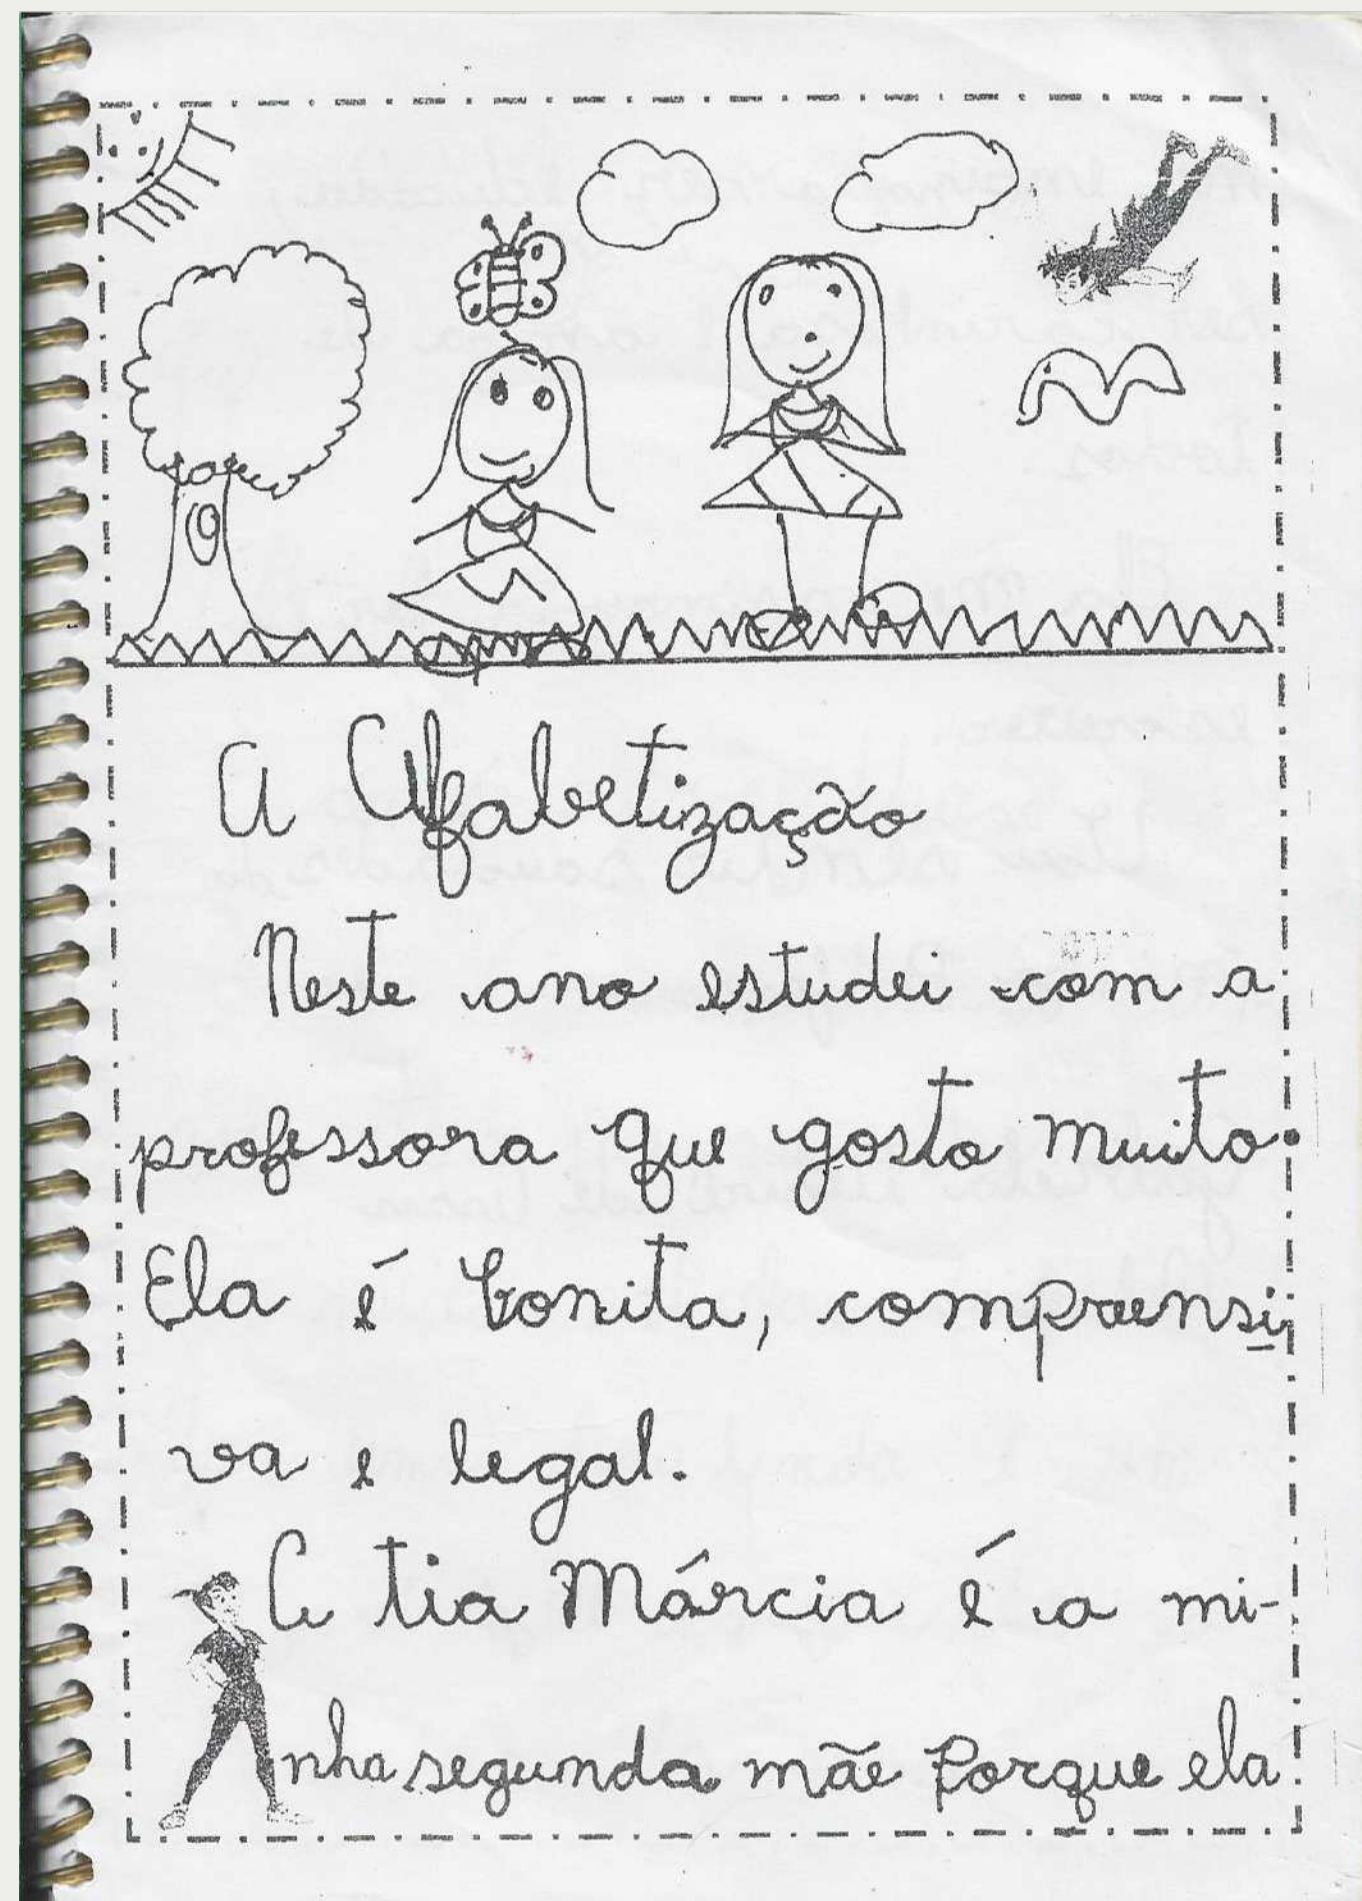 A Alfabetização
Neste ano estudei com a
professora que gosto muito.
Ela é bonita, compreensi
va e legal.
A tia Márcia é a mi-
nha segunda mãe porque ela